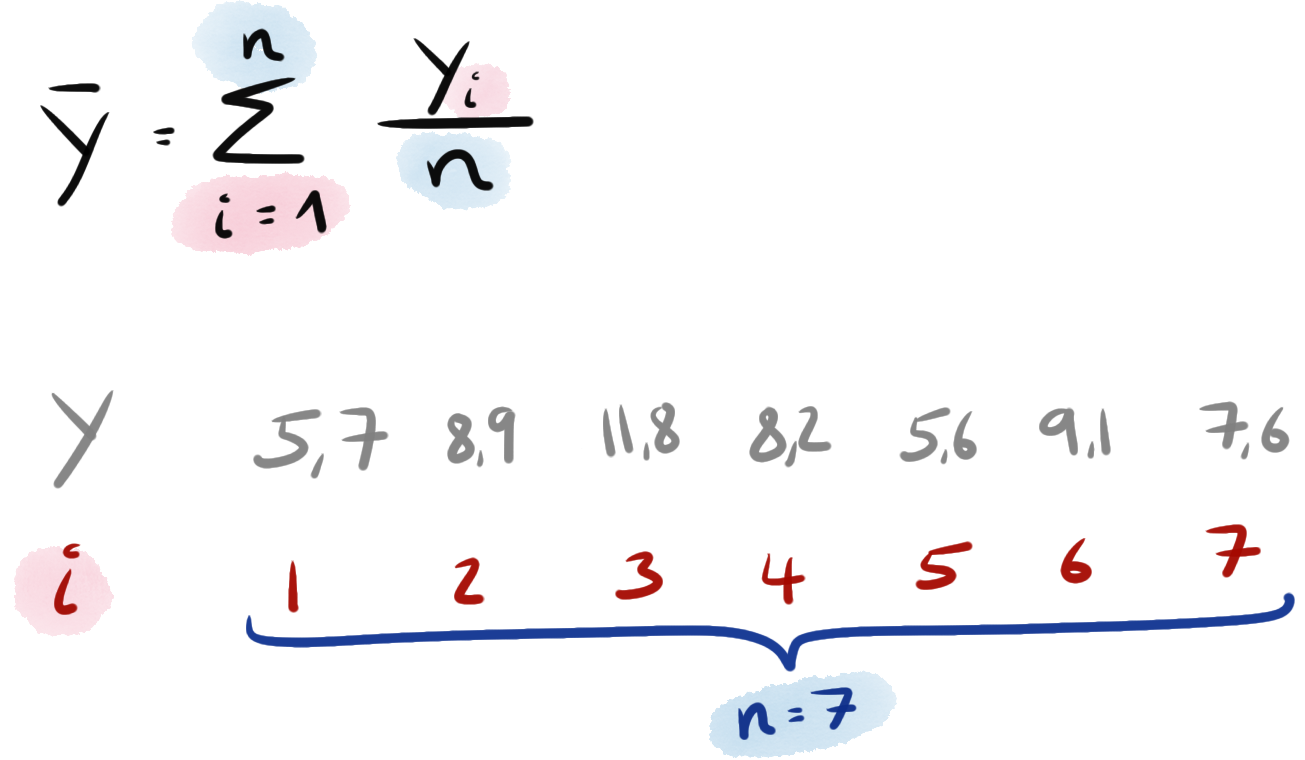 ȳ = Σ_{i=1}^{n} y_i / n
y 5,7 8,9 11,8 8,2 5,6 9,1 7,6
i 1 2 3 4 5 6 7
n=7